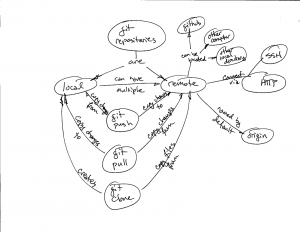 git
repositories
are
github
other
computer
other
local
directory
can be
hosted
SSH
local
can have
multiple
remote
connect
via
HTTP
copy changes
from
git
push
copy changes
to
named by
default
origin
copy changes
to
git
pull
copy changes
from
creates
git
clone
copy files
from